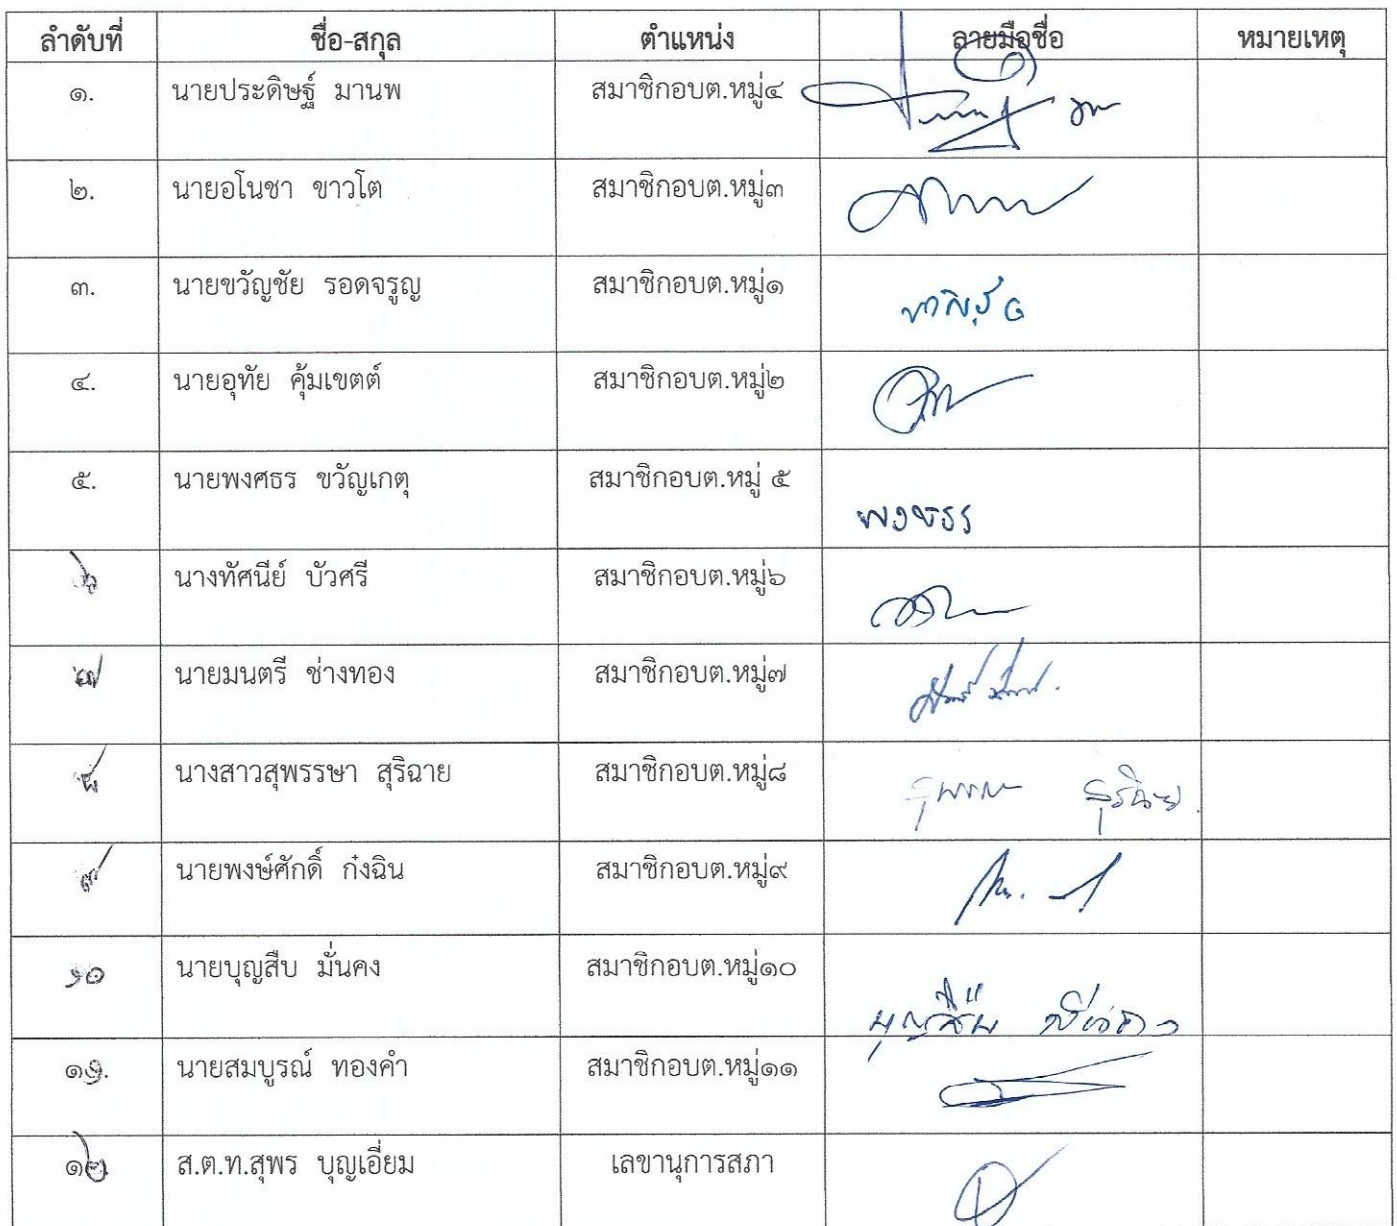 ลำดับที่ ชื่อ-สกุล ตำแหน่ง ลายมือชื่อ หมายเหตุ
๑. นายประดิษฐ์ มานพ สมาชิกอบต.หมู่๔
๒. นายอโนชา ขาวโต สมาชิกอบต.หมู่๓
๓. นายขวัญชัย รอดจรูญ สมาชิกอบต.หมู่๑
๔. นายอุทัย คุ้มเขตต์ สมาชิกอบต.หมู่๒
๕. นายพงศธร ขวัญเกตุ สมาชิกอบต.หมู่ ๕
พงศธร
๖ นางทัศนีย์ บัวศรี สมาชิกอบต.หมู่๖
๗ นายมนตรี ช่างทอง สมาชิกอบต.หมู่๗
๘ นางสาวสุพรรษา สุริฉาย สมาชิกอบต.หมู่๘
๙ นายพงษ์ศักดิ์ ก๋งฉิน สมาชิกอบต.หมู่๙
๑๐ นายบุญสืบ มั่นคง สมาชิกอบต.หมู่๑๐
บุญสืบ มั่นคง
๑๑. นายสมบูรณ์ ทองคำ สมาชิกอบต.หมู่๑๑
๑๒ ส.ต.ท.สุพร บุญเอี่ยม เลขานุการสภา